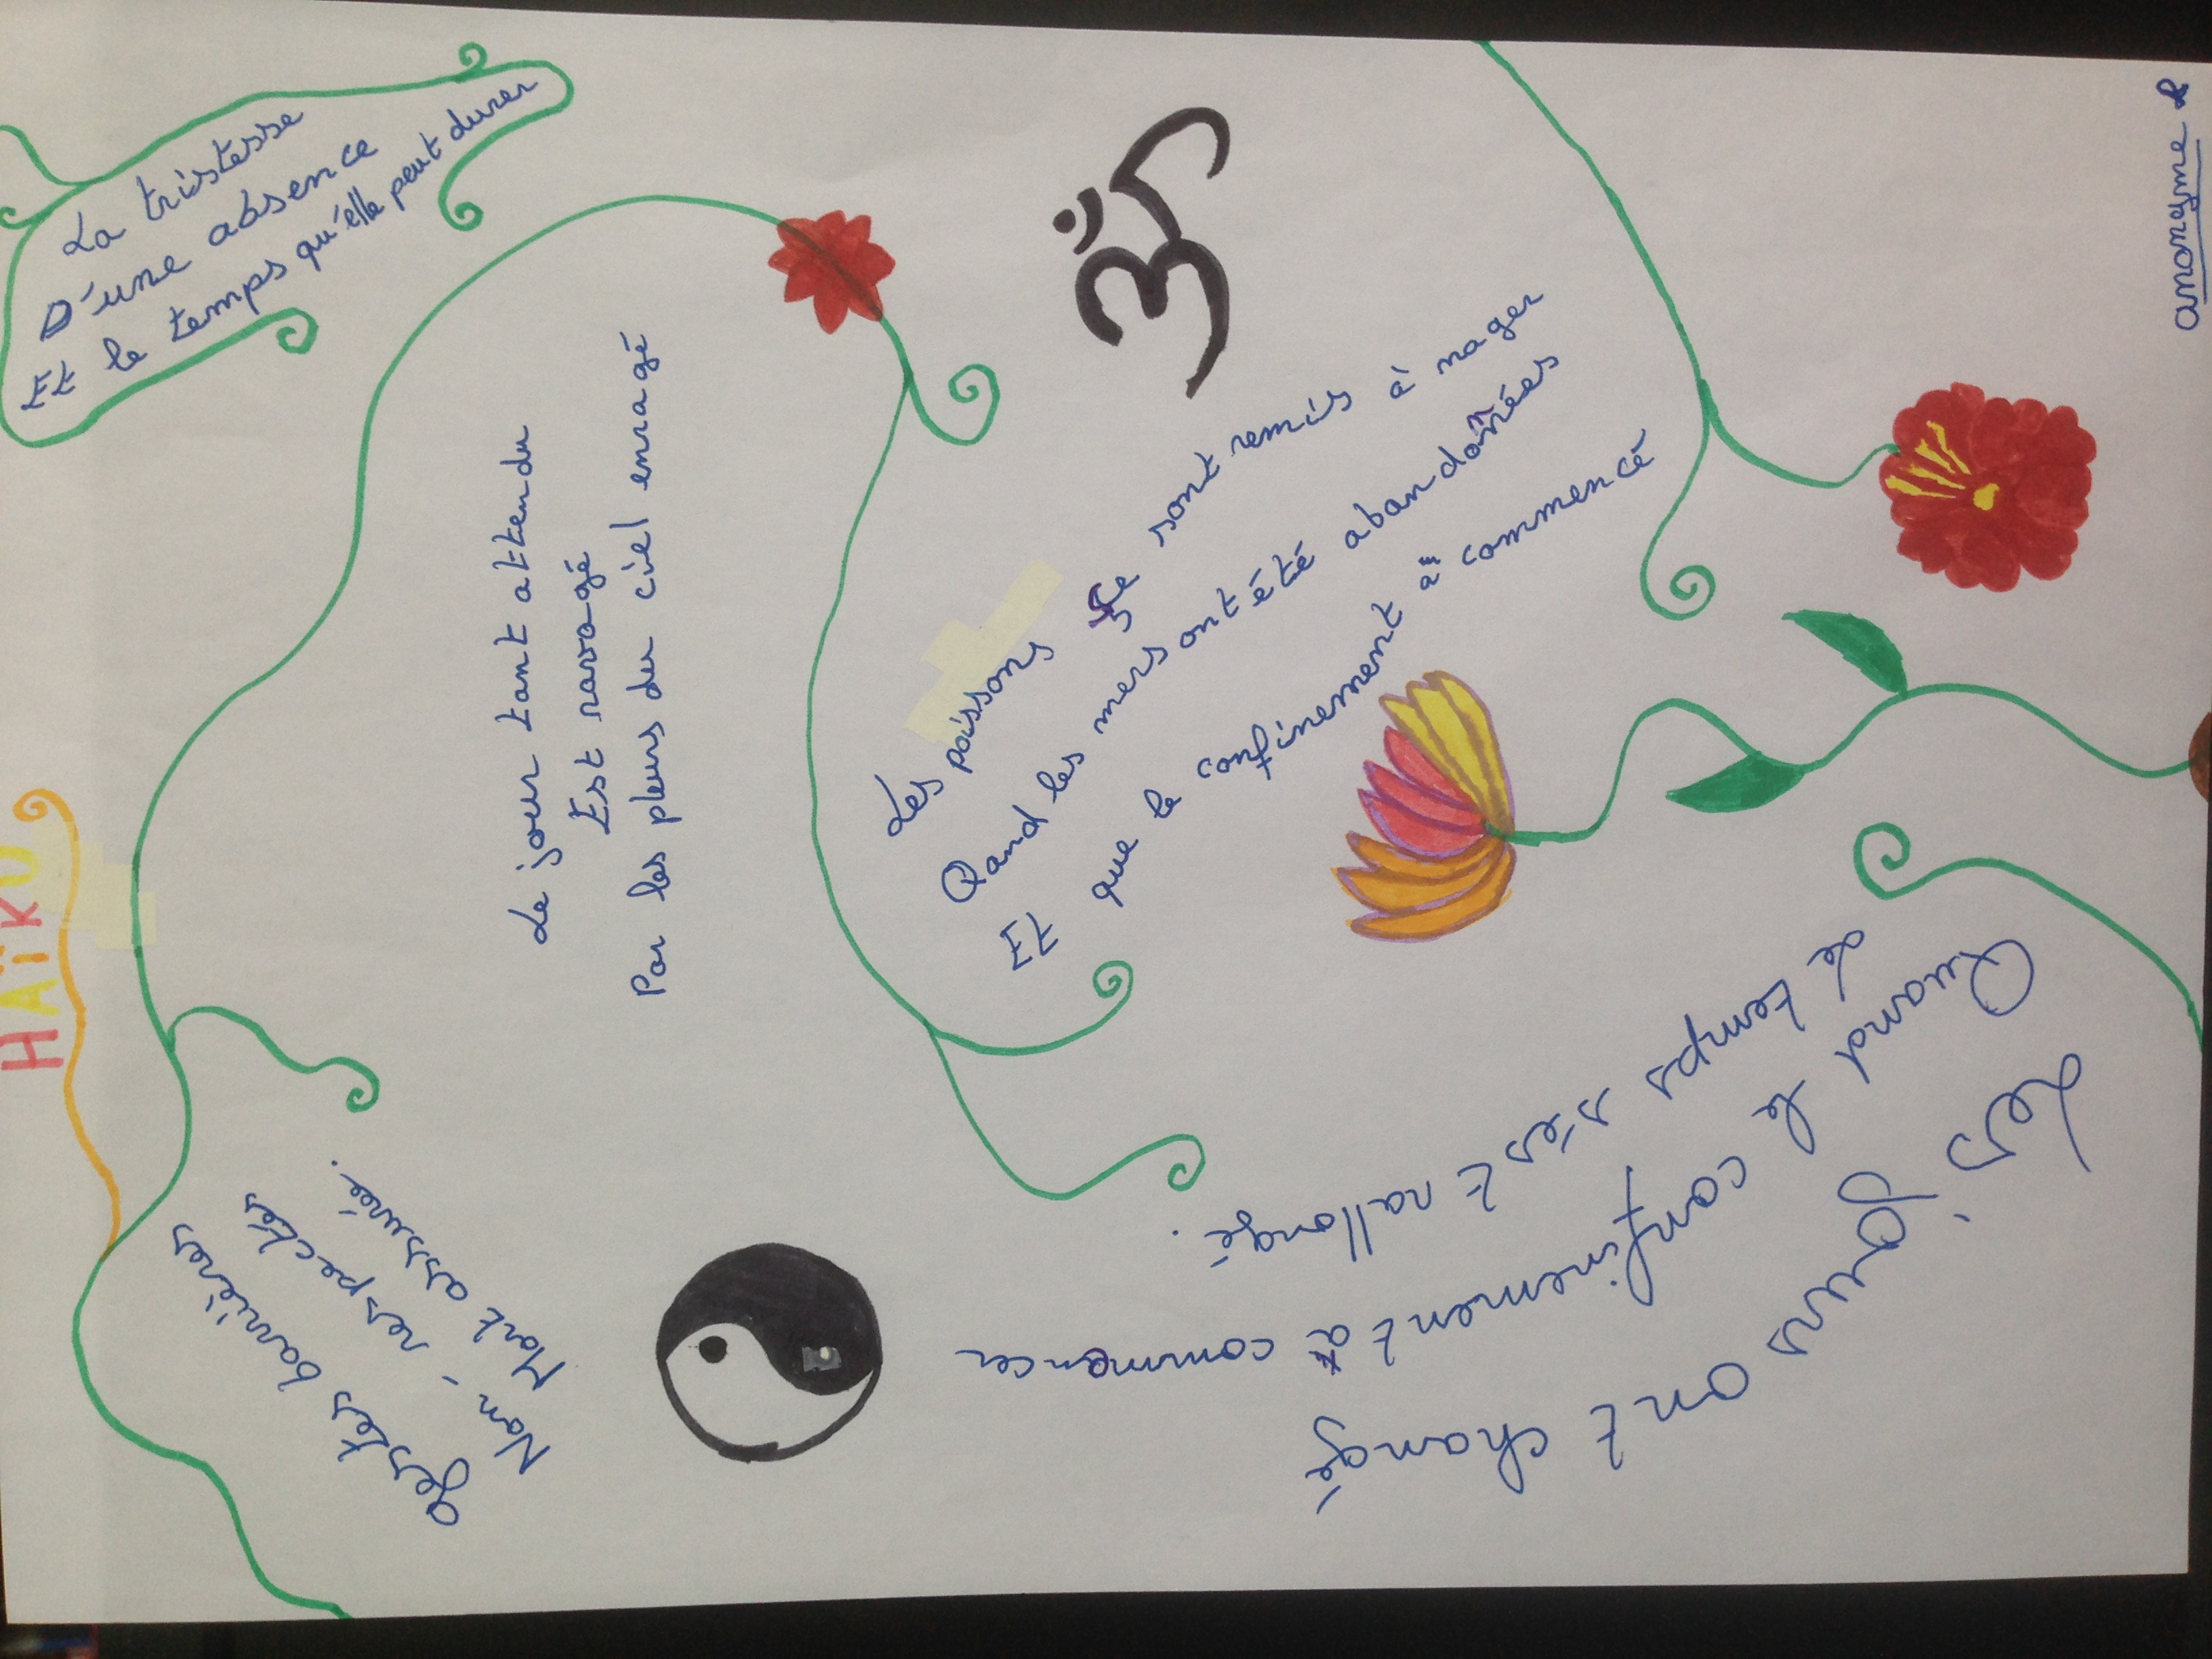 HAïKU
La tristesse
D'une absence
Et le temps qu'elle peut durer
Le jour tant attendu
Est ravagé
Par les pleurs du ciel enragé
gestes barrières
Non, respectés
Mort assurée.
Les poissons se sont remis à nager
Quand les mers ont été abandonnées
Et que le confinement à commencé
Les jours ont changé
Quand le confinement a commencer
Le temps s'est rallongé.
anonyme